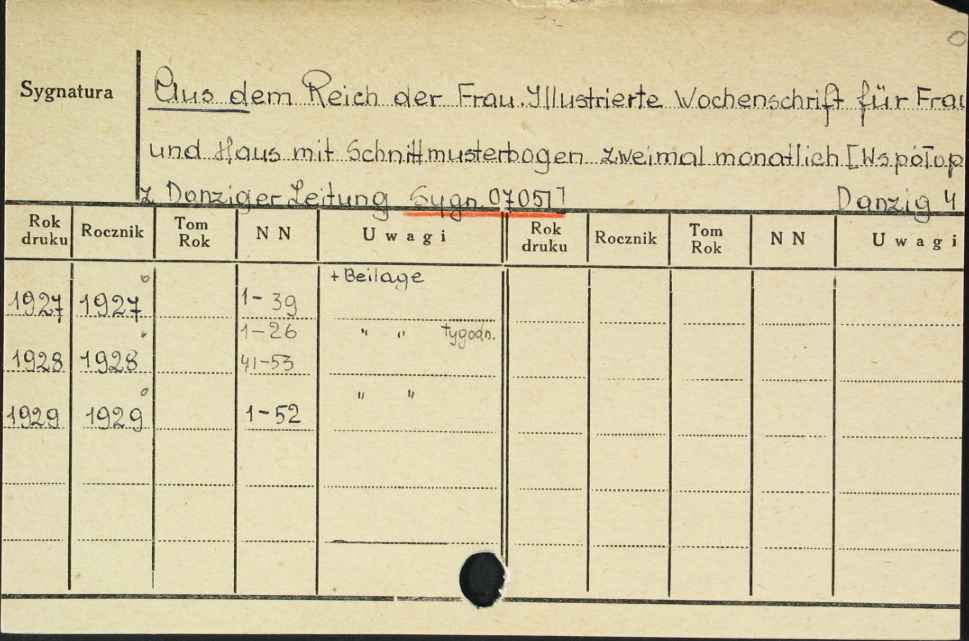 Sygnatura
Aus dem Reich der Frau. Illustrierte Wochenschrift für Frau
und Haus mit Schnittmusterbogen zweimal monatlich [Współop
z Danziger Zeitung Sygn. 07051] Danzig 4
Rok druku Rocznik Tom Rok NN Uwagi Rok druku Rocznik Tom Rok NN Uwagi
+ Beilage
1927 1927 1-39
1-26 " " tygodn.
1928 1928 41-53
" "
1929 1929 1-52